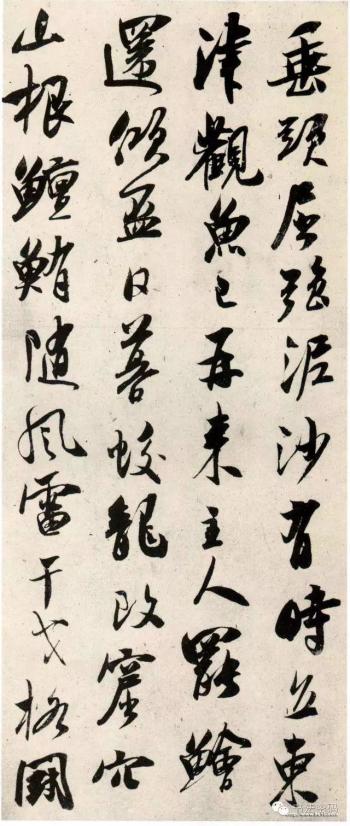 垂頭屈強泥沙有時立東
津觀魚已再来主人罷鱠
還傾盃日暮蛟龍改窟穴
山根鱣鮪随風雷干戈格鬪